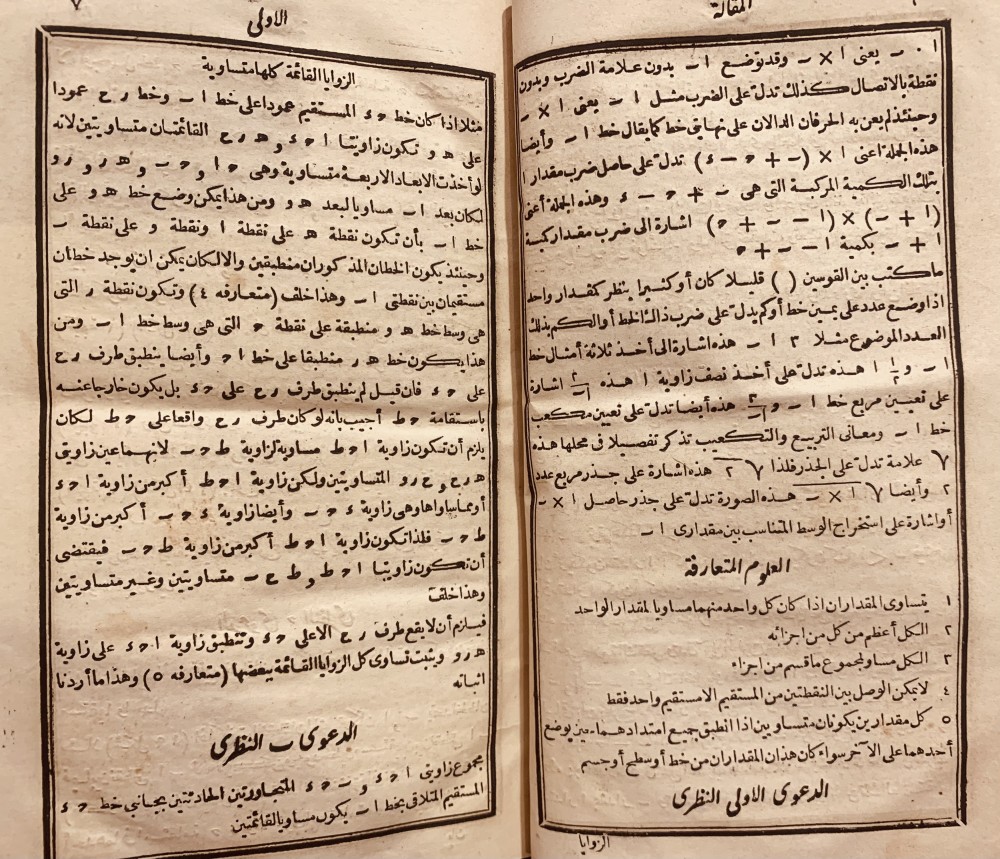 المقالة
ا . ــ يعنى ا × ــ وقد توضع ا ــ بدون علامة الضرب وبدون
نقطة بالاتصال كذلك تدل على الضرب مثل ا ــ يعنى ا × ــ
وحينئذ لم يعن به الحرفان الدالان على نهايتى خط كما يقال خط ا ــ وأيضا
هذه الجملة اعنى ا × (ــ + ح ــ ء) تدل على حاصل ضرب مقدار ا
بتلك الكمية المركبة التى هى ــ + ح ــ ء وهذه الجملة أعنى
(ا + ــ) × (ا ــ ــ + ح) اشارة الى ضرب مقدار كمية
ا + ــ بكمية ا ــ ــ + ح
ما كتب بين القوسين ( ) قليلا كان أو كثيرا ينظر كمقدار واحد
اذا وضع عدد على يمين خط أو كم يدل على ضرب ذلك الخط أو الكم بذلك
العدد الموضوع مثلا ٣ ا ــ هذه اشارة الى أخذ ثلاثة أمثال خط
ا ــ و ١/٢ ا هذه تدل على أخذ نصف زاوية ا هذه ا ــ ٢ اشارة
على تعيين مربع خط ا ــ و ا ــ ٣ هذه أيضا تدل على تعيين مكعب
خط ا ــ ومعانى التربيع والتكعيب تذكر تفصيلا فى محلها هذه
√ علامة تدل على الجذر فلذا √ ٢ هذه اشارة على جذر مربع عدد
٢ وأيضا √ ا × ــ هذه الصورة تدل على جذر حاصل ا × ــ
أو اشارة على استخراج الوسط المتناسب بين مقدارى ا ــ
العلوم المتعارفة
١ يتساوى المقداران اذا كان كل واحد منهما مساويا لمقدار الواحد
٢ الكل أعظم من كل من اجزائه
٣ الكل مساو لمجموع ما قسم من اجزاء
٤ لا يمكن الوصل بين النقطتين من المستقيم الا مستقيم واحد فقط
٥ كل مقدارين يكونان متساويين اذا انطبق جميع امتدادهما حين يوضع
أحدهما على الآخر سواء كان هذان المقداران من خط أو سطح أو جسم
الدعوى الاولى النظرى
الزوايا
٧
الاولى
الزوايا القائمة كلها متساوية
مثلا اذا كان خط ح ء المستقيم عمودا على خط ا ــ وخط ر ح عمودا
على ه و تكون زاويتا ا ح ء و ه ر ح القائمتان متساويتين لانه
لو أخذت الابعاد الاربعة متساوية وهى ح ا و ح ــ و ه ر و ر و
لكان بعد ا ــ مساويا لبعد ه و ومن هذا يمكن وضع خط ه و على
خط ا ــ بأن تكون نقطة ه على نقطة ا ونقطة و على نقطة ــ
وحينئذ يكون الخطان المذكوران منطبقين والا لكان يمكن ان يوجد خطان
مستقيمان بين نقطتى ا ــ وهذا خلف (متعارفه ٤) وتكون نقطة ر التى
هى وسط خط ه و منطبقة على نقطة ح التى هى وسط خط ا ــ ومن
هذا يكون خط ه ر منطبقا على خط ا ح وأيضا ينطبق طرف ر ح
على ح ء فان قيل لم ينطبق طرف ر ح على ح ء بل يكون خارجا عنه
باستقامة ح ط أجيب بانه لو كان طرف ر ح واقعا على ح ط لكان
يلزم أن تكون زاوية ا ح ط مساوية لزاوية ط ح ــ لانهما عين زاويتى
ه ر ح و ح ر و المتساويتين ولكن زاوية ا ح ط أكبر من زاوية ا ح ء
أو مما ساواها وهى زاوية ء ح ــ وأيضا زاوية ء ح ــ أكبر من زاوية
ط ح ــ فلذا تكون زاوية ا ح ط أكبر من زاوية ط ح ــ فيقتضى
أن تكون زاويتا ا ح ط و ط ح ــ متساويتين وغير متساويتين
وهذا خلف
فيلزم أن لا يقع طرف ر ح الا على ح ء وتنطبق زاوية ا ح ء على زاوية
ه ر و ويثبت تساوى كل الزوايا القائمة ببعضها (متعارفه ٥) وهذا ما أردنا
اثباته
الدعوى ب النظرى
مجموع زاويتى ا ح ء و ــ ح ء المتجاورتين الحادثتين بجانبى خط ح ء
المستقيم المتلاقى بخط ا ــ يكون مساويا لقائمتين